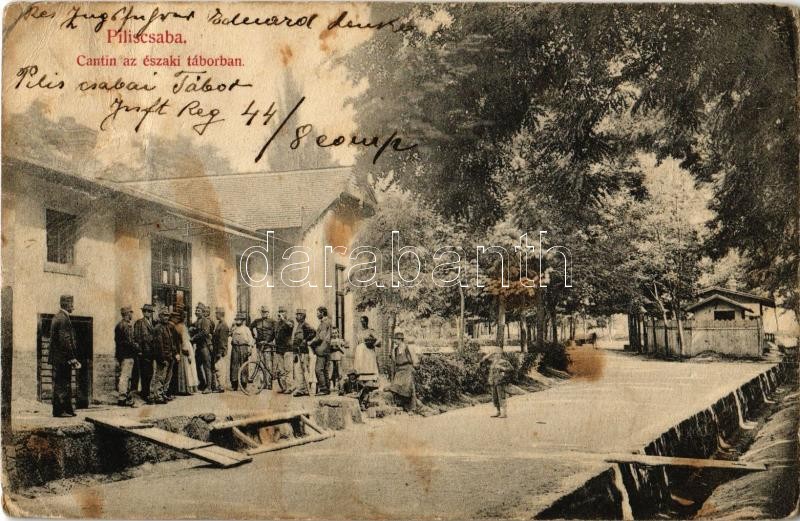 Zugsführer Eduard
Piliscsaba.
Cantin az északi táborban.
Pilis csabai Tábor
Inft Reg 44/8 comp
darabanth